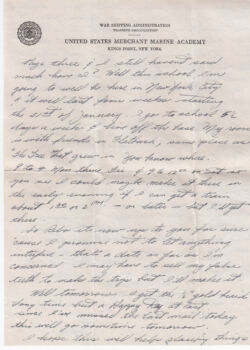 WAR SHIPPING ADMINISTRATION
TRAINING ORGANIZATION
UNITED STATES MERCHANT MARINE ACADEMY
KINGS POINT, NEW YORK
Page three & I still haven't said
much have I? Well this school I'm
going to will be here in New York City
& it will last four weeks starting
the 21st of January. I go to school 5½
days a week & live off the base. My room
is with friends in Flatbush, same place as
"The Tree that grew in" you know where.
you are I could maybe make it there in
the early evening if I can get a train
about 1:00 or 2:00 or later - but I'll get
there.
So it's now up to you for sure
cause I promise not to let anything
interfere - that's a date as far as I'm
concerned. I may have to sell my false
teeth to make the trip but I'll make it.
Well tomorrow I
long time but a happy day at that
since I've missed the last mail today
this will go sometime tomorrow.
I hope this will help clearing things